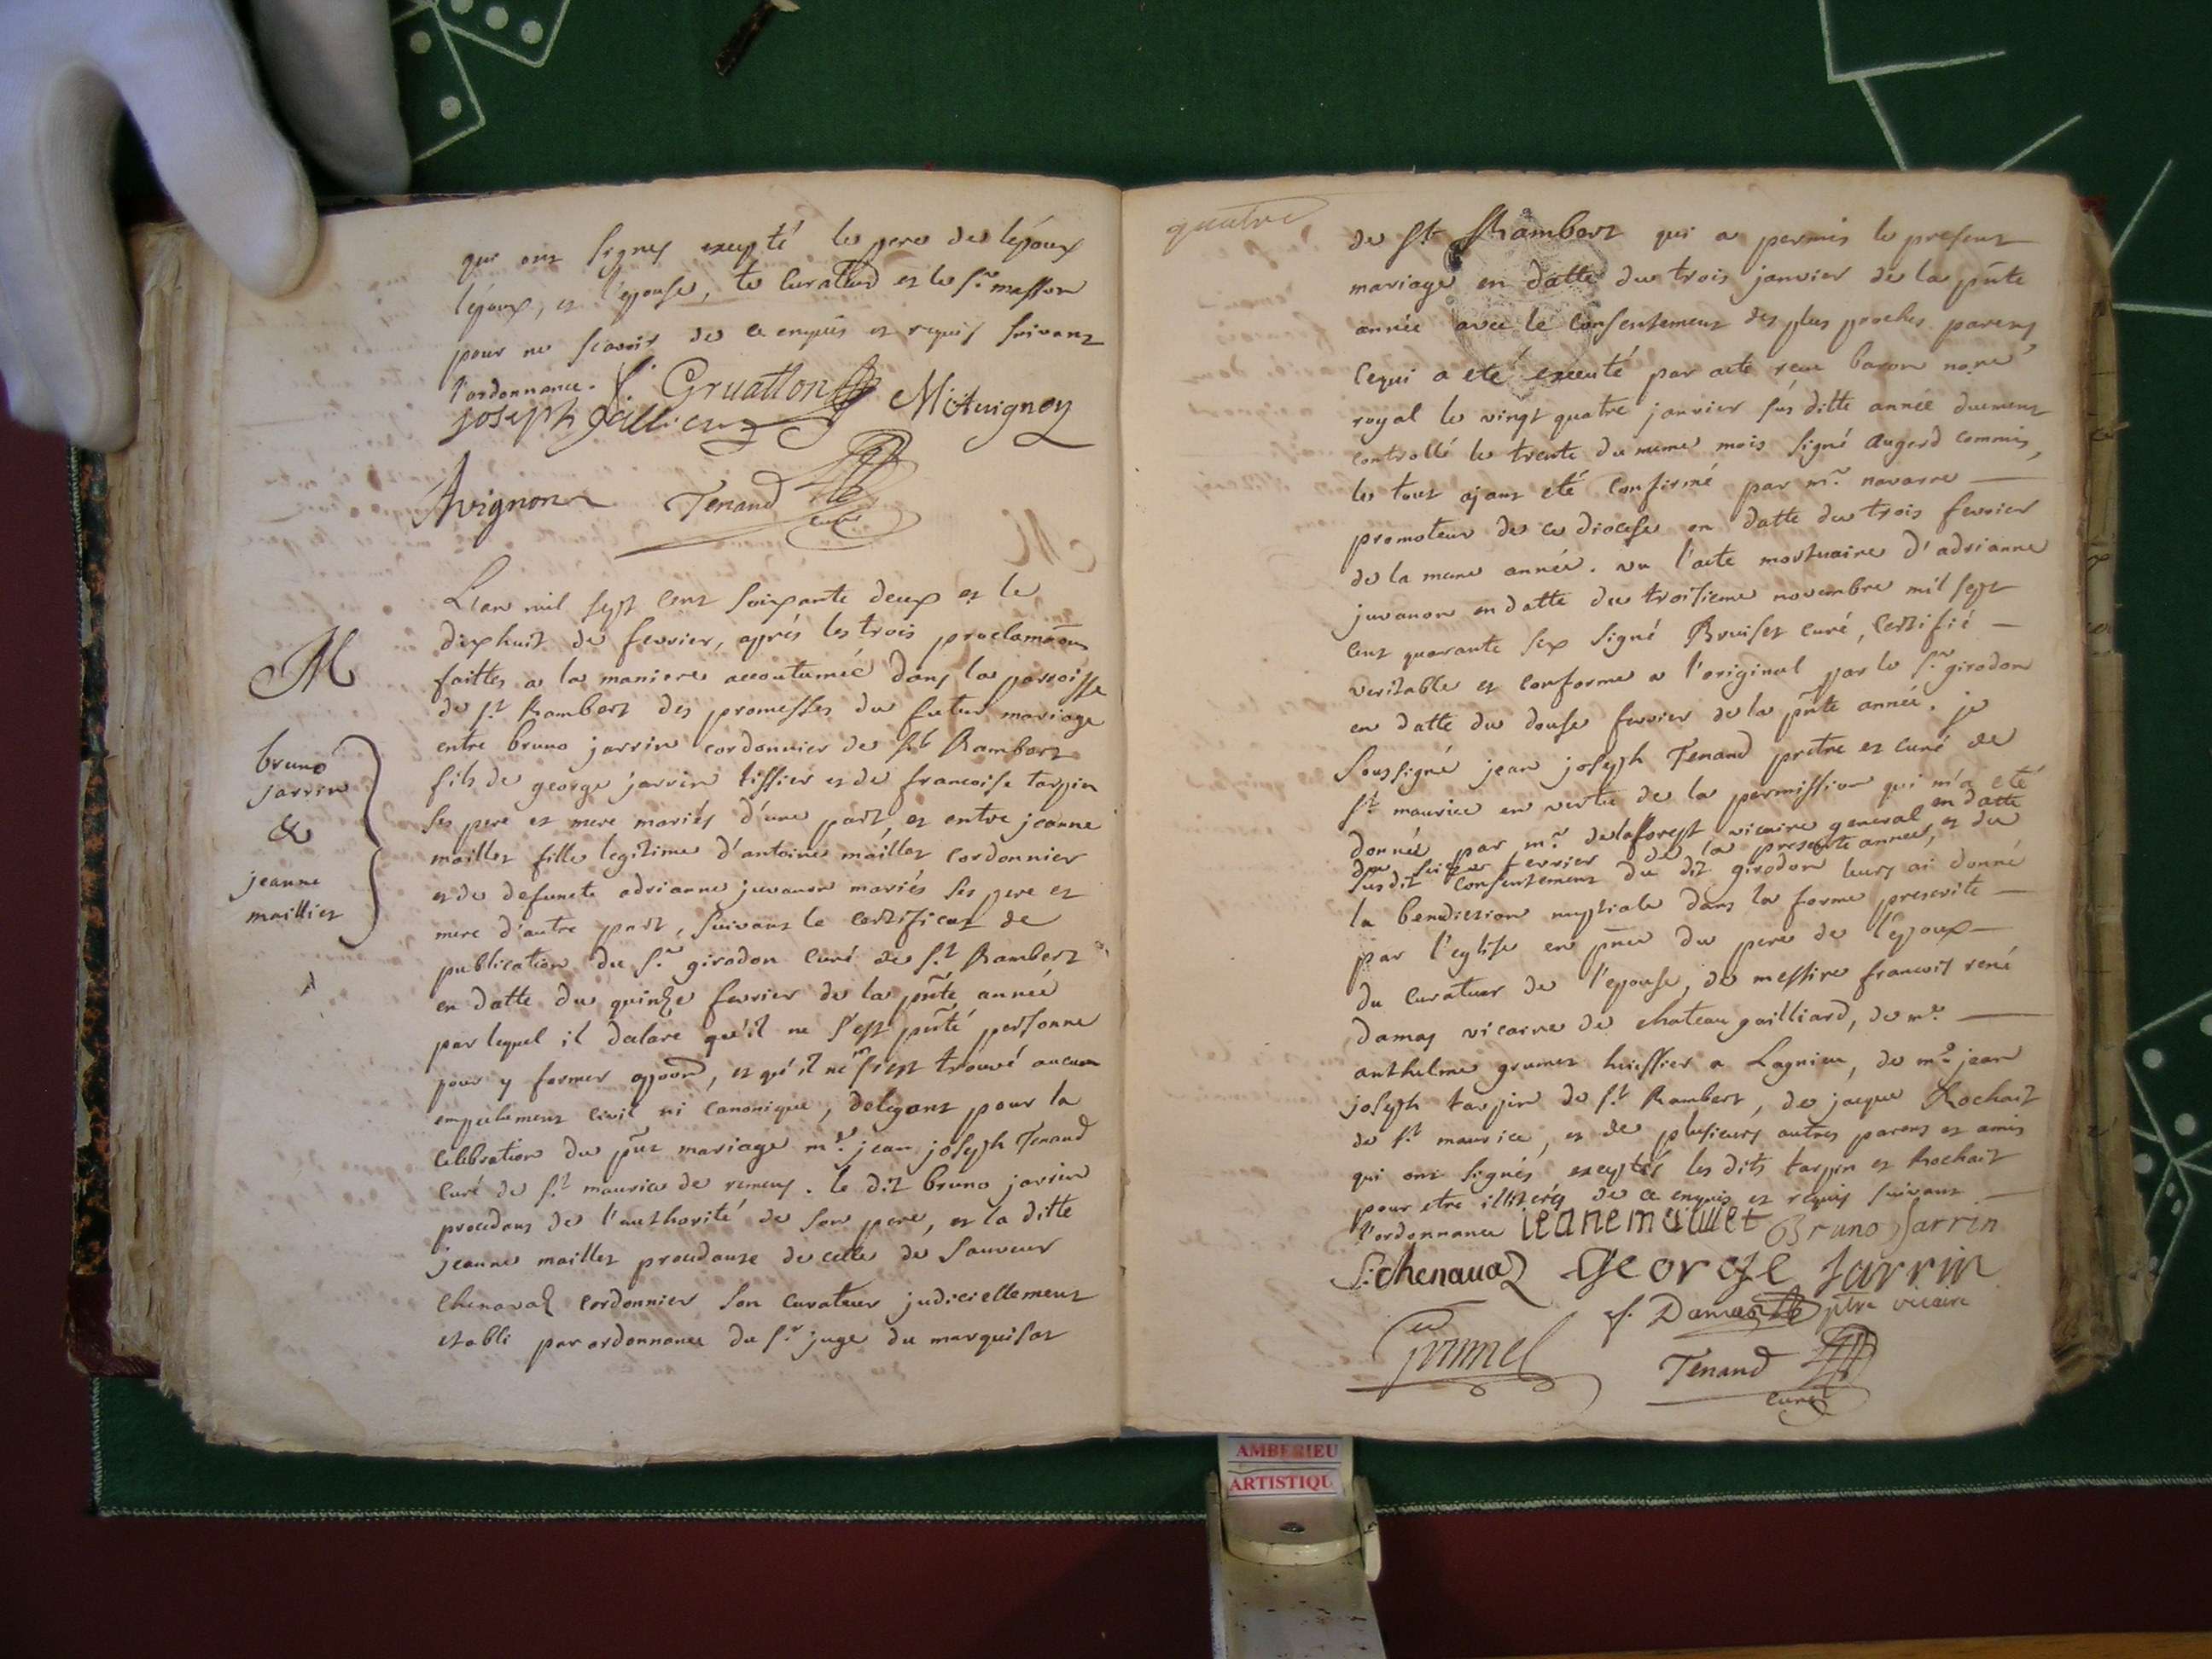 qui ont signes excepté le pere de l'époux
l'époux, et l'epouse, le curateur et le sr. masson
pour ne scavoir de ce enquis et requis suivant
l'ordonnance.
Gruatton
joseph
M Avignon
Avignon
Tenand
curé
M
bruno
jarrin
&
jeanne
maillet
L'an mil sept cent soixante deux et le
dixhuit de fevrier, aprés les trois proclamãons
faittes a la maniere accoutumée dans la parroisse
de st. Rambert des promesses du futur mariage
entre bruno jarrin cordonnier de st Rambert
fils de george jarrin tissier et de francoise tarpin
ses pere et mere mariés d'une part, et entre jeanne
maillet fille legitime d'antoine maillet cordonnier
et de defuncte adrianne juvanon mariés ses pere et
mere d'autre part, suivant le certificat de
publication du sr. girodon curé de st. Rambert
en datte du quinze fevrier de la pñte année
par lequel il declare qu'il ne s'est pñté personne
pour y former oppoõn, et qu'il ne s'est trouvé aucun
empechement civil ni canonique, delegant pour la
celebration du pñt mariage mre. jean joseph Tenand
curé de st. maurice de remens. le dit bruno jarrin
procedant de l'authorité de son pere, et la ditte
jeanne maillet procedante de celle de sauveur
chenavaz cordonnier son curateur judiciellement
etabli par ordonnance du sr. juge du marquisat
quatre
de st Rambert qui a permis le present
mariage en datte du trois janvier de la pñte
année avec le consentement des plus proches parens
ce qui a eté executé par acte recu baron nore
royal le vingt quatre janvier sus ditte année duement
controllé le trente du meme mois signé augerd commis,
le tout ajant eté confirmé par mr. navarre
promoteur de ce diocese en datte du trois fevrier
de la meme année. vu l'acte mortuaire d'adrianne
juvanon en datte du troisieme novembre mil sept
cent quarante six signé Bruiset curé, certifié
veritable et conforme a l'original par le sr. girodon
en datte du douse fevrier de la pñte année. je
soussigné jean joseph Tenand pretre et curé de
st. maurice en vertu de la permission qui m'a eté
donnée par mr. delaforest vicaire general en datte
du fevrier de la presente année, et du
susdit consentement du dit girodon leurs ai donné
la benediction nuptiale dans la forme prescrite
par l'eglise en pñce du pere de l'epoux
du curateur de l'epouse, de messire francois rené
damas vicaire de chateau gailliard, de me.
anthelme grumet huissier a Lagnieu, de me. jean
joseph tarpin de st. Rambert, de jacque Rochait
de st. maurice, et de plusieurs autres parens et amis
qui ont signés exceptés les dits tarpin et Rochait
pour etre illiterés de ce enquis et requis suivant
l'ordonnance
jeanemaillet
Bruno Jarrin
S. chenauaz
George Jarrin
f. Damas ptre vicaire
Grumet
Tenand
curé
AMBERIEU
ARTISTIQU